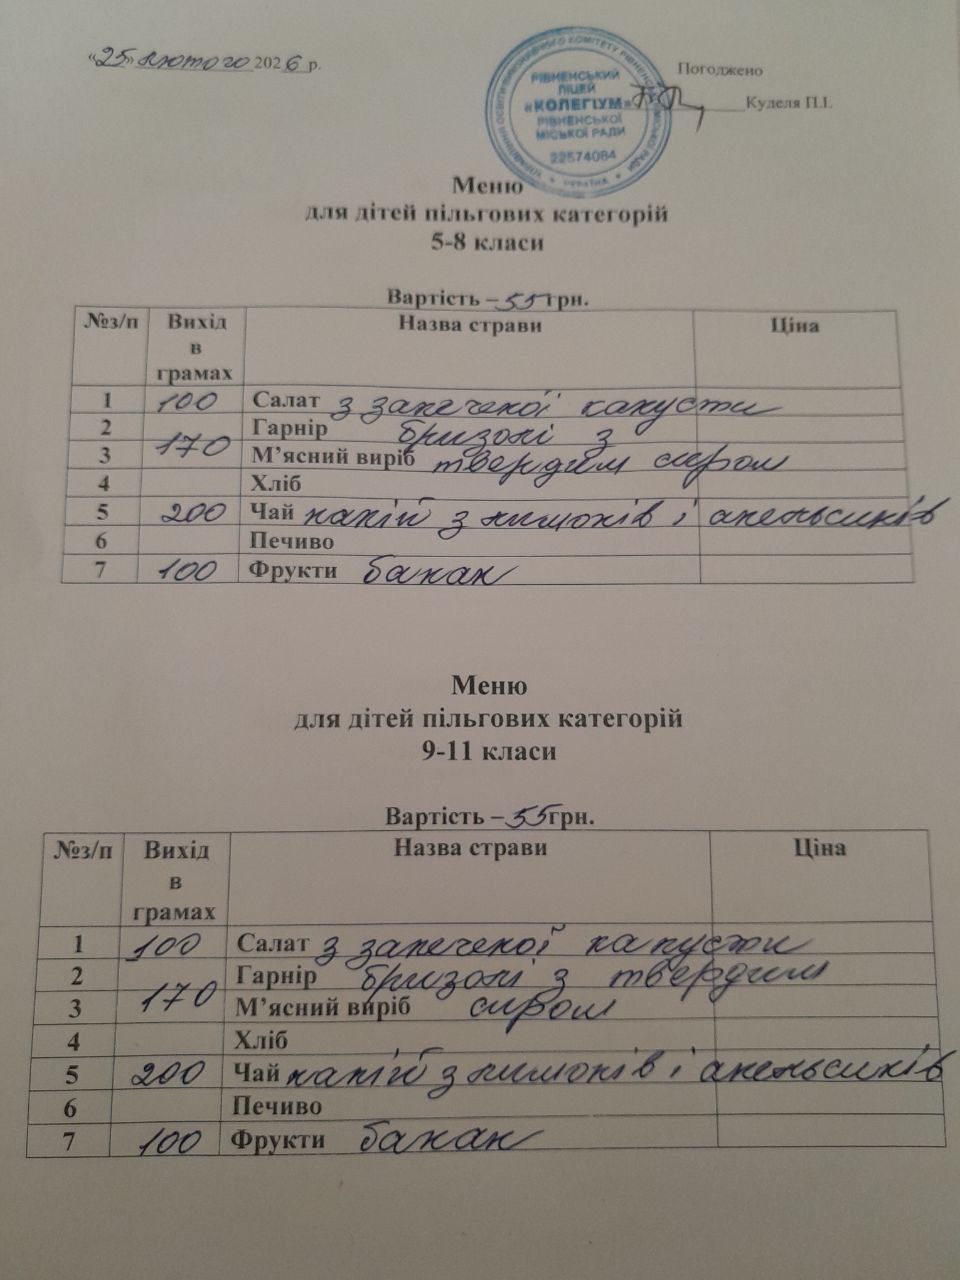 «25» лютого 2026 р.
УПРАВЛІННЯ ОСВІТИ ВИКОНАВЧОГО КОМІТЕТУ РІВНЕНСЬКОЇ МІСЬКОЇ РАДИ * УКРАЇНА *
РІВНЕНСЬКИЙ
ЛІЦЕЙ
«КОЛЕГІУМ»
РІВНЕНСЬКОЇ
МІСЬКОЇ РАДИ
22574084
Погоджено
Куделя П.І.
Меню
для дітей пільгових категорій
5-8 класи
Вартість – 55 грн.
№з/п Вихід в грамах Назва страви Ціна
1 100 Салат з запеченої капусти
2 Гарнір бризолі з
3 170 М’ясний виріб твердим сиром
4 Хліб
5 200 Чай напій з лимонів і апельсинів
6 Печиво
7 100 Фрукти банан
Меню
для дітей пільгових категорій
9-11 класи
Вартість – 55 грн.
№з/п Вихід в грамах Назва страви Ціна
1 100 Салат з запеченої капусти
2 Гарнір бризолі з твердим
3 170 М’ясний виріб сиром
4 Хліб
5 200 Чай напій з лимонів і апельсинів
6 Печиво
7 100 Фрукти банан